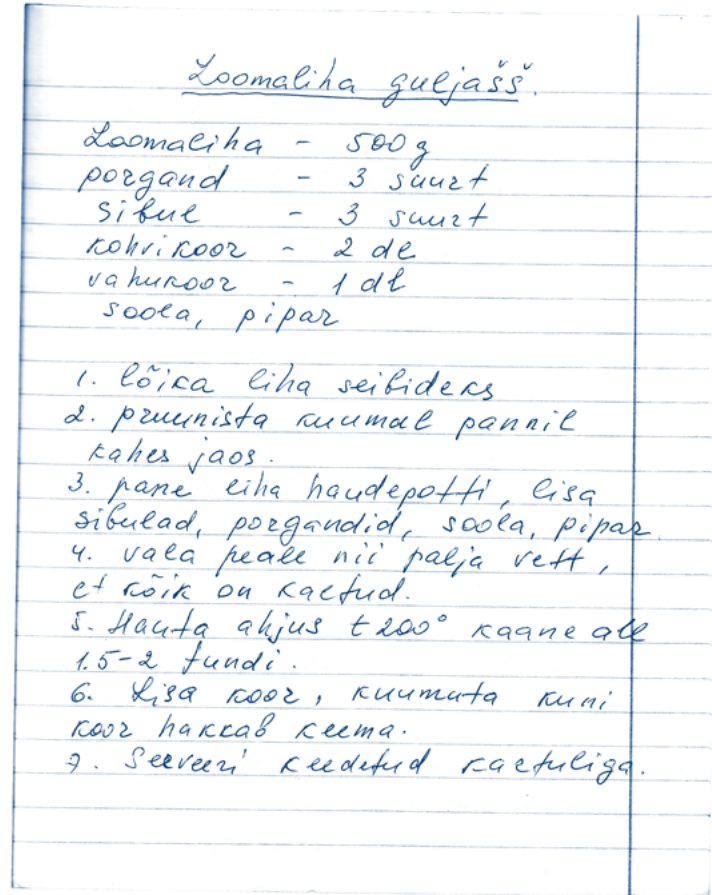 Loomaliha guljašš.
Loomaliha - 500g
porgand - 3 suurt
sibul - 3 suurt
kohvikoor - 2 dl
vahukoor - 1 dl
soola, pipar
1. lõika liha seibideks
2. pruunista kuumal pannil
kahes jaos.
3. pane liha haudepotti, lisa
sibulad, porgandid, soola, pipar.
4. vala peale nii palja vett,
et kõik on kaetud.
5. Hauta ahjus t 200° kaane all
1.5-2 tundi.
6. Lisa koor, kuumuta kuni
koor hakkab keema.
7. Serveeri keedetud kartuliga.